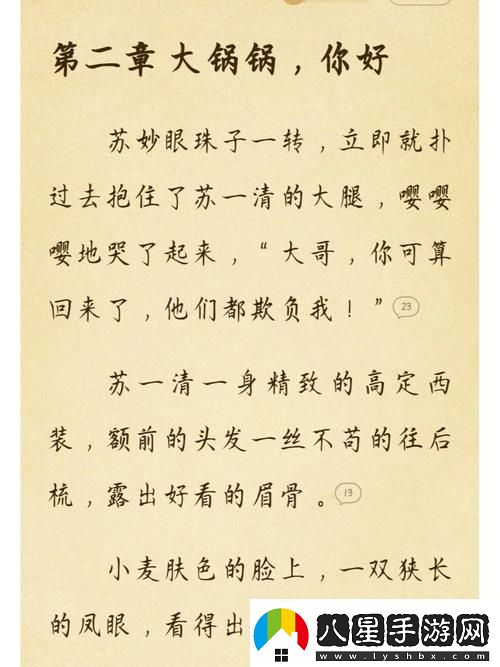 第二章 大锅锅，你好
苏妙眼珠子一转，立即就扑
过去抱住了苏一清的大腿，嘤嘤
嘤地哭了起来，“大哥，你可算
回来了，他们都欺负我！” 23
苏一清一身精致的高定西
装，额前的头发一丝不苟的往后
梳，露出好看的眉骨。 13
小麦肤色的脸上，一双狭长
的凤眼，看得出
八星手游网
www.lyshbx.com